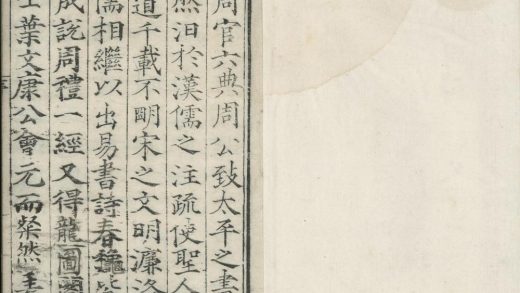 周官六典周公致太平之書
然汩於漢儒之注疏使聖人
道千載不明宋之文明濂洛
儒相繼以出易書詩春龝皆
成說周禮一經又得龍圖閣
士葉文康公會元而粲然